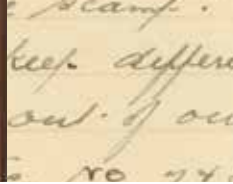 e stamp.
keep differe
out of ou
No